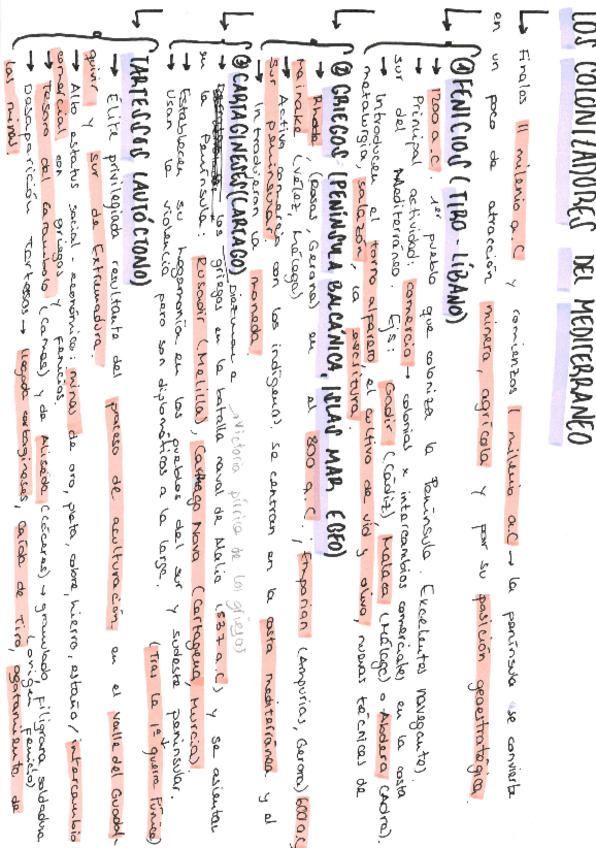 LOS COLONIZADORES DEL MEDITERRANEO
Finales II milenio a.C y comienzos I milenio a.C → la península se convierte
en un poco de atracción minera, agrícola y por su posición geoestratégica.
① FENICIOS (TIRO - LÍBANO)
→ 1200 a.C. 1er pueblo que coloniza la Península. Excelentes navegante).
→ Principal actividad: comercio → colonias e intercambios comerciales en la costa
sur del Mediterráneo. Ejs: Gadir (Cádiz), Malaca (Málaga) o Abdera (Adra).
→ Introducen el torno alfarero, el cultivo de vid y olivo, nuevas técnicas de
metalurgia, salazón, la escritura.
② GRIEGOS (PENÍNSULA BALCÁNICA, ISLAS MAR EGEO)
→ Rhode, (Rosas, Gerona) en el 800 a.C.; Emporian (Ampurias, Gerona) 600 a.C
Mainake (Vélez, Málaga)
→ Activo comercio con los indígenas, se centran en la costa mediterránea y el
sur peninsular.
→ Introdujeron la moneda.
→ Victoria pírrica de los griegos
③ CARTAGINESES (CARTAGO)
→ Diezman a los griegos en la batalla naval de Alalia (537 a.C) y se asientan
en la Península: Rusadir (Melilla), Carthago Nova (Cartagena, Murcia).
→ Establecen su hegemonía en los pueblos del sur y sudeste peninsular.
→ Usan la violencia pero son diplomáticos a la larga. (Tras la 1ª guerra Púnica)
TARTESSOS (AUTÓCTONO)
→ Élite privilegiada resultante del proceso de aculturación en el valle del Guadal-
quivir y sur de Extremadura.
→ Alto estatus social-económico: minas de oro, plata, cobre, hierro, estaño / intercambio
comercial con griegos y fenicios.
→ Tesoro del Carambolo (Camas) y de Aliseda (Cáceres) → granulado, filigrana soldadura
(origen fenicio)
→ Desaparición Tartessos → llegada cartagineses, caída de Tiro, agotamiento de
las minas.